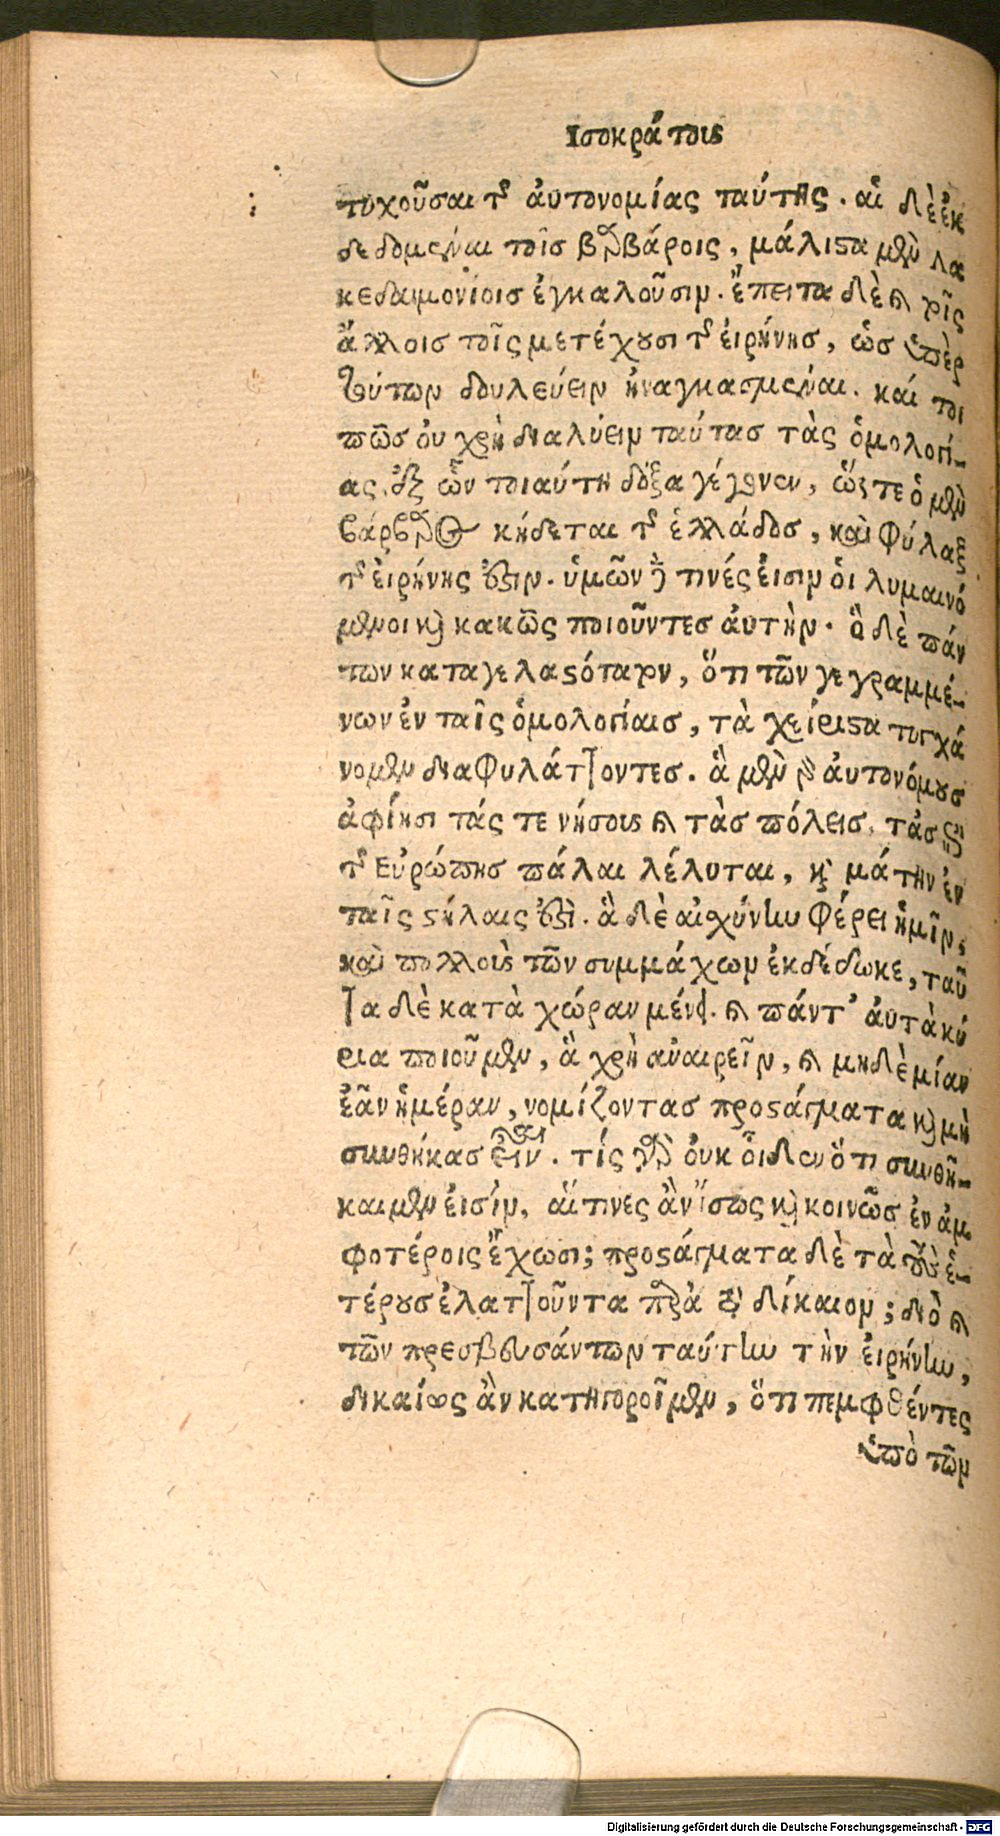 Ισοκράτους
τυχοῦσαι τῆς αὐτονομίας ταύτης. αἱ δὲ ἐκ
δεδομέναι τοῖς βαρβάροις, μάλιστα μὲν λα
κεδαιμονίοις ἐγκαλοῦσιν. ἔπειτα δὲ καὶ τοῖς
ἄλλοις τοῖς μετέχουσι τῆς εἰρήνης, ὡς ὑπὲρ
τούτων δουλεύειν ἠναγκασμέναι. καί τοι
πῶς οὐ χρὴ διαλύειν ταύτας τὰς ὁμολογί-
ας, ἐξ ὧν τοιαύτη δόξα γέγονεν, ὥστε ὁ μὲν
βάρβαρος κήδεται τῆς ἑλλάδος, καὶ φύλαξ
τῆς εἰρήνης ἐστιν. ὑμῶν δέ τινές εἰσιν οἱ λυμαινό
μενοι καὶ κακῶς ποιοῦντες αὐτὴν. ὃ δὲ πάν
των καταγελαστότατον, ὅτι τῶν γεγραμμέ-
νων ἐν ταῖς ὁμολογίαις, τὰ χείριστα τυγχά
νομεν διαφυλάττοντες. ἃ μὲν γὰρ αὐτονόμους
ἀφίησι τάς τε νήσους καὶ τὰς πόλεις, τὰς ἐπὶ
τῆς Εὐρώπης πάλαι λέλυται, καὶ μάτην ἐν
ταῖς στήλαις ἐστὶ. ἃ δὲ αἰσχύνην φέρει ἡμῖν,
καὶ πολλοὺς τῶν συμμάχων ἐκδέδωκε, ταῦ
τα δὲ κατὰ χώραν μένει. καὶ πάντ’ αὐτὰ κύ
ρια ποιοῦμεν, ἃ χρὴ ἀναιρεῖν, καὶ μηδὲ μίαν
ἐᾶν ἡμέραν, νομίζοντας προστάγματα καὶ μὴ
συνθήκας εἶναι. τίς γὰρ οὐκ οἶδεν ὅτι συνθῆ-
και μέν εἰσὶν, αἵ τινες ἂν ἴσως καὶ κοινῶς ἐν ἀμ
φοτέροις ἔχωσι; προστάγματα δὲ τὰ τοὺς ἑ-
τέρους ἐλαττοῦντα παρὰ τὸ δίκαιον; διὸ καὶ
τῶν πρεσβευσάντων ταύτην τὴν εἰρήνην,
δικαίως ἂν κατηγοροῖμεν, ὅτι πεμφθέντες
ὑπὸ τῶν
Digitalisierung gefördert durch die Deutsche Forschungsgemeinschaft - DFG